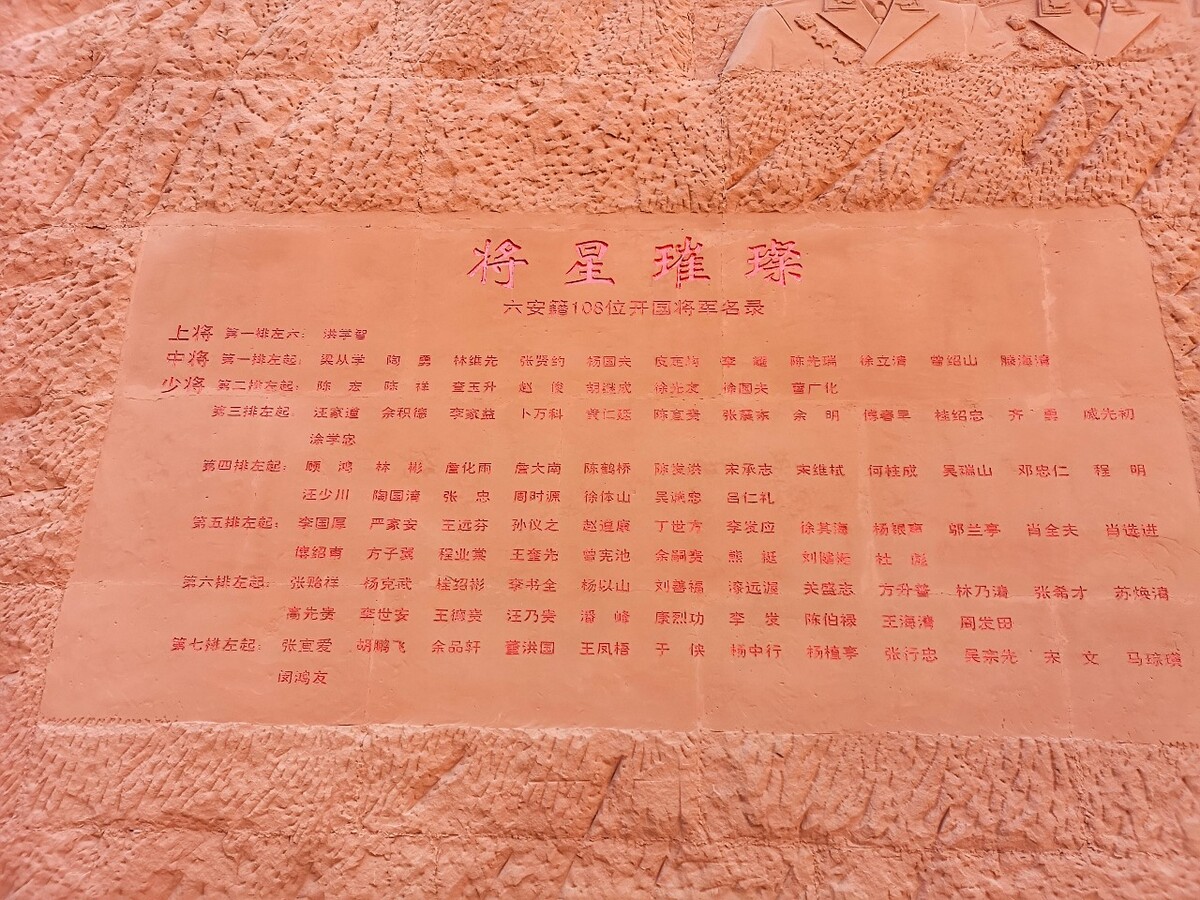 将星璀璨
六安籍108位开国将军名录
上将 第一排左六: 洪学智
中将 第一排左起: 梁从学 陶勇 林维先 张贤约 杨国夫 皮定均 李耀 陈先瑞 徐立清 曾绍山 滕海清
少将 第二排左起: 陈宏 陈祥 查玉升 赵俊 胡继成 徐光友 徐国夫 曹广化
第三排左起: 汪家道 余积德 李家益 卜万科 黄仁廷 陈宜贵 张震东 余明 傅春早 桂绍忠 齐勇 戚先初
涂学忠
第四排左起: 顾鸿 林彬 詹化雨 詹大南 陈鹤桥 陈发洪 宋承志 宋维栻 何柱成 吴瑞山 邓忠仁 程明
汪少川 陶国清 张忠 周时源 徐体山 吴诚忠 吕仁礼
第五排左起: 李国厚 严家安 王远芬 孙仪之 赵遵康 丁世方 李发应 徐其海 杨银声 邬兰亭 肖全夫 肖选进
傅绍甫 方子翼 程业棠 王奎先 曾宪池 余嗣贵 熊挺 刘健挺 杜彪
第六排左起: 张贻祥 杨克武 桂绍彬 李书全 杨以山 刘善福 漆远渥 关盛志 方升普 林乃清 张希才 苏焕清
高先贵 李世安 王德贵 汪乃贵 潘峰 康烈功 李发 陈伯禄 王海清 周发田
第七排左起: 张宜爱 胡鹏飞 余品轩 董洪国 王凤梧 于侠 杨中行 杨植亭 张行忠 吴宗先 宋文 马琮璜
闵鸿友